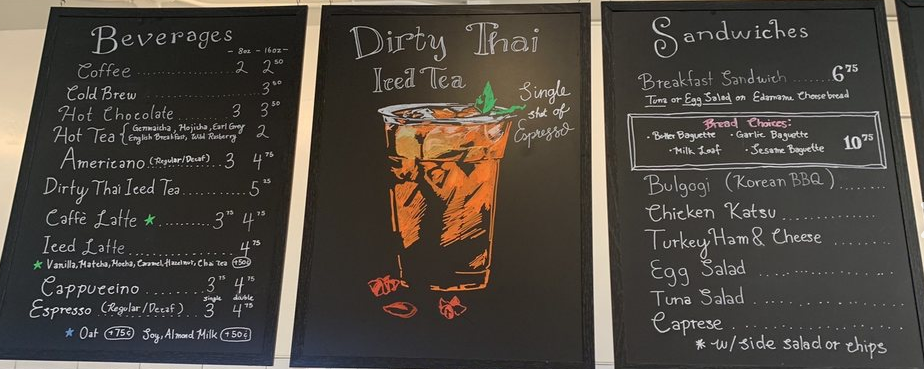 Beverages
- 8oz - 16oz -
Coffee 2 2⁵⁰
Cold Brew 3⁵⁰
Hot Chocolate 3 3⁵⁰
Hot Tea { Genmaicha, Hojicha, Earl Grey
English Breakfast, Wild Raspberry 2
Americano (Regular/Decaf) 3 4⁷⁵
Dirty Thai Iced Tea 5
Caffè Latte ★ 3⁷⁵ 4⁷⁵
Iced Latte 4⁷⁵
★ Vanilla, Matcha, Mocha, Caramel, Hazelnut, Chai Tea +50¢
Cappuccino 3⁷⁵ 4⁷⁵
single double
Espresso (Regular/Decaf) 3 4⁷⁵
★ Oat +75¢ Soy, Almond Milk +50¢
Dirty Thai
Iced Tea
Single
shot of
Espresso
Sandwiches
Breakfast Sandwich 6⁷⁵
Tuna or Egg Salad on Edamame Cheese bread
Bread Choices:
• Butter Baguette • Garlic Baguette
• Milk Loaf • Sesame Baguette 10⁷⁵
Bulgogi (Korean BBQ)
Chicken Katsu
Turkey Ham & Cheese
Egg Salad
Tuna Salad
Caprese
* w/ side salad or chips